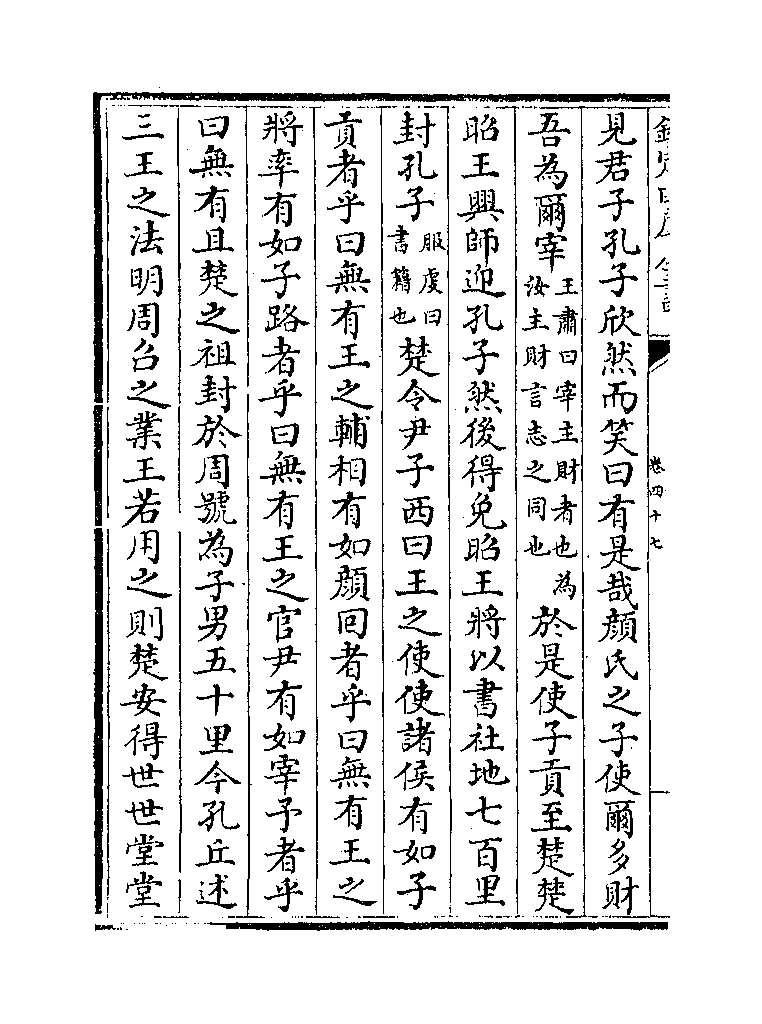 欽定四庫全書 卷四十七
見君子孔子欣然而笑曰有是哉顔氏之子使爾多財
吾為爾宰王肅曰宰主財者也為汝主財言志之同也於是使子貢至楚楚
昭王興師迎孔子然後得免昭王將以書社地七百里
封孔子服虔曰書籍也楚令尹子西曰王之使使諸侯有如子
貢者乎曰無有王之輔相有如顔回者乎曰無有王之
將率有如子路者乎曰無有王之官尹有如宰予者乎
曰無有且楚之祖封於周號為子男五十里今孔丘述
三王之法明周召之業王若用之則楚安得世世堂堂